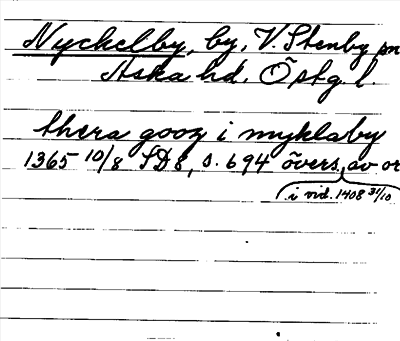 Nyckelby, by, V. Stenby sn
Aska hd. Östg. l.
thera gooz i myklaby
1365 10/8 SD8, s. 694 övers. av or
i vid. 1408 31/10